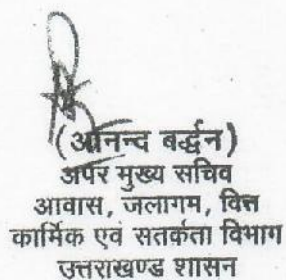 (आनन्द बर्द्धन)
अपर मुख्य सचिव
आवास, जलागम, वित्त
कार्मिक एवं सतर्कता विभाग
उत्तराखण्ड शासन